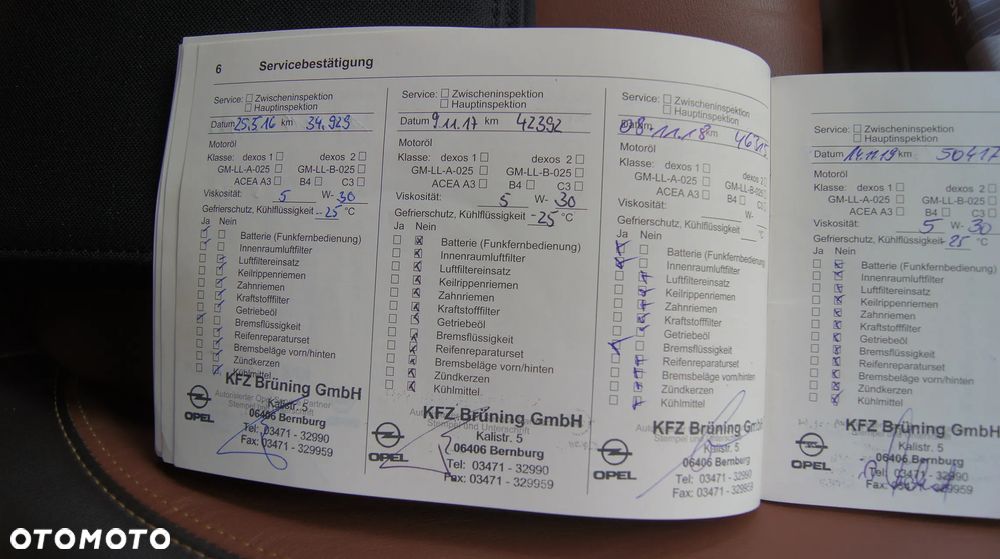 6 Servicebestätigung
Service: Zwischeninspektion
Hauptinspektion
Datum 25.5.16 km 34.929
Motoröl
Klasse: dexos 1 dexos 2
GM-LL-A-025 GM-LL-B-025
ACEA A3 B4 C3
Viskosität: 5 W- 30
Gefrierschutz, Kühlflüssigkeit -25 °C
Ja Nein
Batterie (Funkfernbedienung)
Innenraumluftfilter
Luftfiltereinsatz
Keilrippenriemen
Zahnriemen
Kraftstofffilter
Getriebeöl
Bremsflüssigkeit
Reifenreparaturset
Bremsbeläge vorn/hinten
Zündkerzen
Kühlmittel
KFZ Brüning GmbH
Kalistr. 5
06406 Bernburg
Tel: 03471 - 32990
Fax: 03471 - 329959
OPEL
Service: Zwischeninspektion
Hauptinspektion
Datum 9.11.17 km 42392
Motoröl
Klasse: dexos 1 dexos 2
GM-LL-A-025 GM-LL-B-025
ACEA A3 B4 C3
Viskosität: 5 W- 30
Gefrierschutz, Kühlflüssigkeit -25 °C
Ja Nein
Batterie (Funkfernbedienung)
Innenraumluftfilter
Luftfiltereinsatz
Keilrippenriemen
Zahnriemen
Kraftstofffilter
Getriebeöl
Bremsflüssigkeit
Reifenreparaturset
Bremsbeläge vorn/hinten
Zündkerzen
Kühlmittel
KFZ Brüning GmbH
Stempel und Unterschrift
Kalistr. 5
06406 Bernburg
Tel: 03471 - 32990
Fax: 03471 - 329959
OPEL
Service: Zwischeninspektion
Hauptinspektion
08.11.18 km
Motoröl
Klasse: dexos 1 dexos 2
GM-LL-A-025 GM-LL-B-025
ACEA A3 B4
Viskosität: W-
Gefrierschutz, Kühlflüssigkeit °C
Ja Nein
Batterie (Funkfernbedienung
Innenraumluftfilter
Luftfiltereinsatz
Keilrippenriemen
Zahnriemen
Kraftstofffilter
Getriebeöl
Bremsflüssigkeit
Reifenreparaturset
Bremsbeläge vorn/hinten
Zündkerzen
Kühlmittel
KFZ Brüning Gmb
Kalistr. 5
06406 Bernburg
Tel: 03471 - 32990
Fax: 03471 - 329959
OPEL
Service: Zwischeninspektion
Hauptinspektion
Datum 14.11.19 km 50417
Motoröl
Klasse: dexos 1 dexos 2
GM-LL-A-025 GM-LL-B-025
ACEA A3 B4 C3
Viskosität: 5 W- 30
Gefrierschutz, Kühlflüssigkeit -25 °C
Ja Nein
Batterie (Funkfernbedienung)
Innenraumluftfilter
Luftfiltereinsatz
Keilrippenriemen
Zahnriemen
Kraftstofffilter
Getriebeöl
Bremsflüssigkeit
Reifenreparaturset
Bremsbeläge vorn/hinten
Zündkerzen
Kühlmittel
KFZ Brüning GmbH
Kalistr. 5
06406 Bernburg
Tel: 03471 - 32990
Fax: 03471 - 329959
OPEL
OTOMOTO